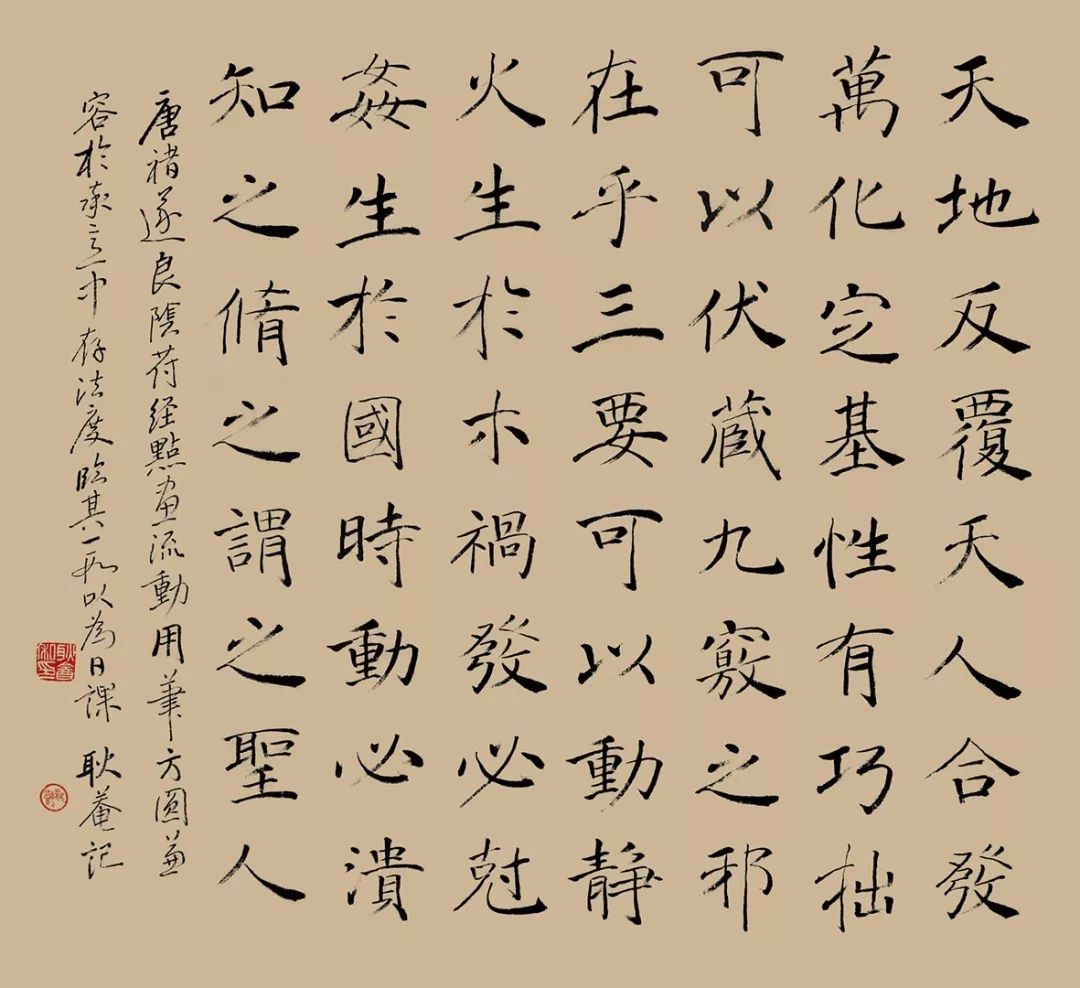 天地反覆天人合發
萬化定基性有巧拙
可以伏藏九竅之邪
在乎三要可以動靜
火生於木禍發必尅
姦生於國時動必潰
知之脩之謂之聖人
唐褚遂良陰符經點畫流動用筆方圓兼
容於率意中存法度臨其一段以為日課 耿菴記